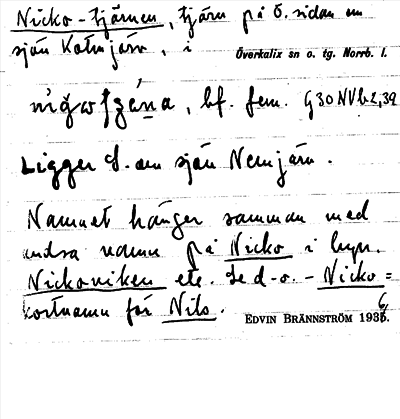 Nicko-tjärnen, tjärn på Ö. sidan om
sjön Kotmjärv, i Överkalix sn o. tg. Norrb. l.
bf. fem. G 30 NV b 2, 39
Ligger S. om sjön Nemjärv.
Namnet hänger samman med
andra namn på Nicko i byn.
Nickoviken etc. Se d-o. – Nicko =
kortnamn för Nils.
EDVIN BRÄNNSTRÖM 1936.